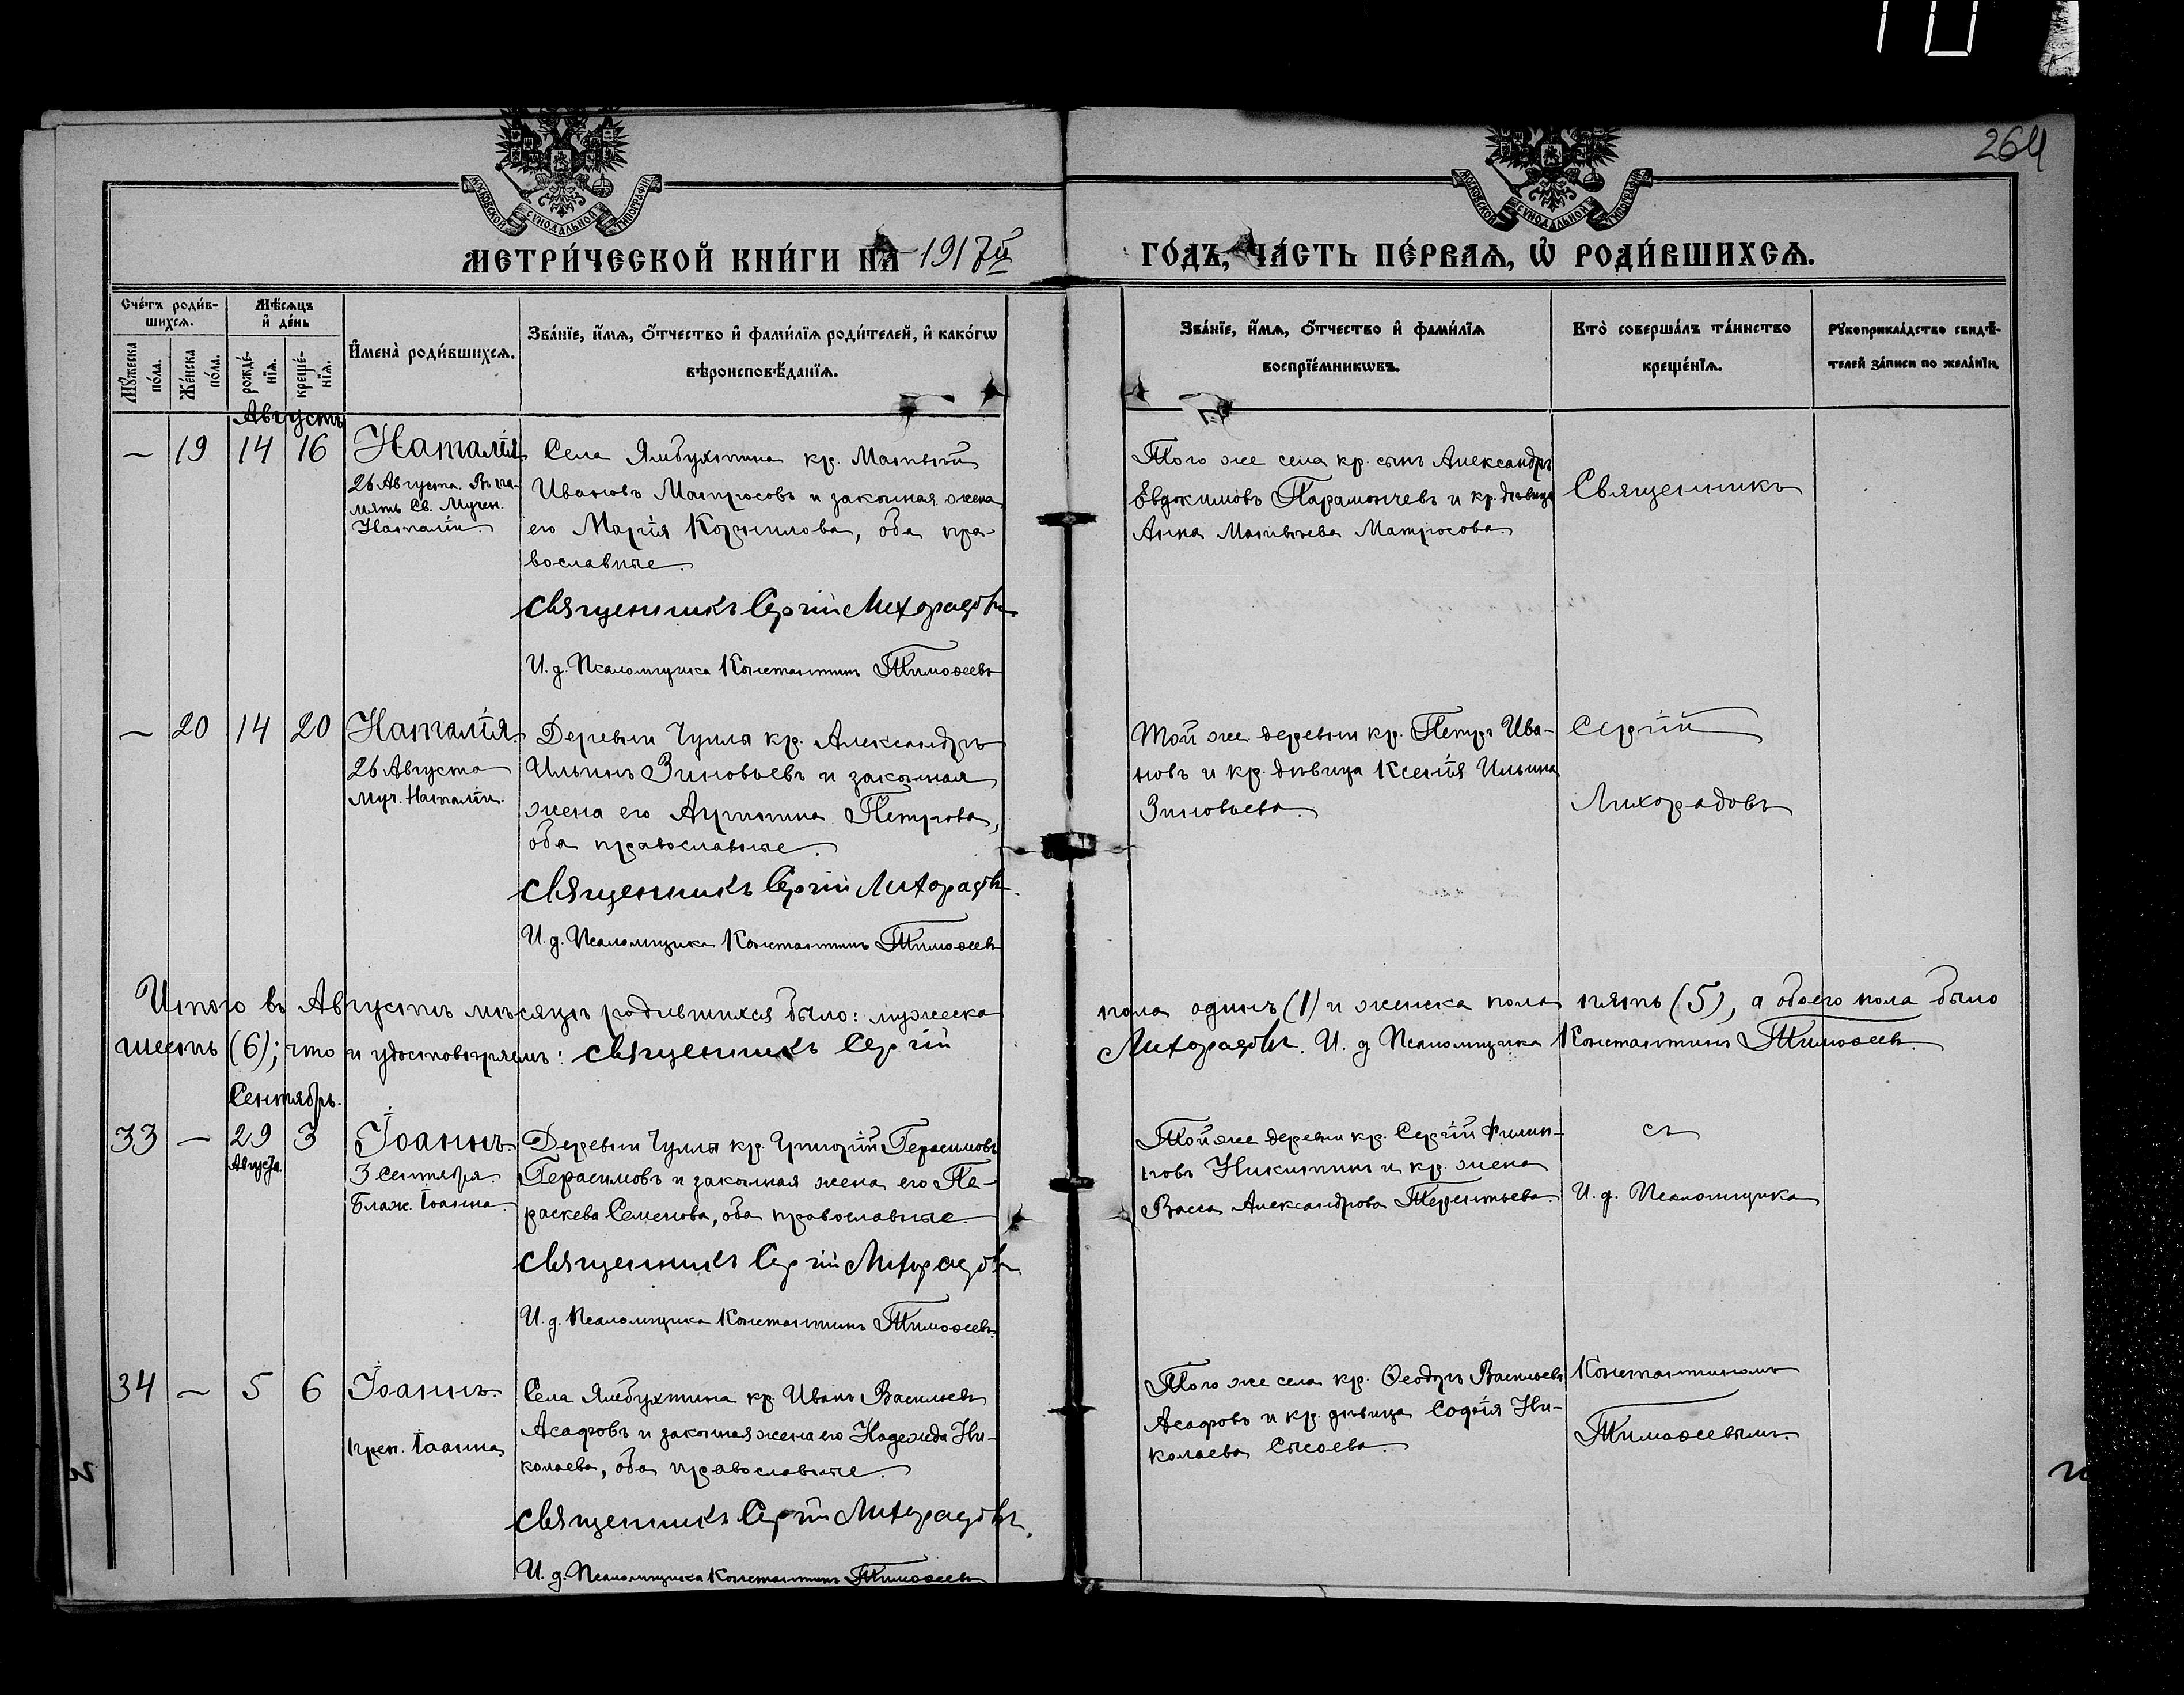 264
МОСКОВСКОЙ СѴНОДАЛЬНОЙ ТИПОГРАФІИ
МОСКОВСКОЙ СѴНОДАЛЬНОЙ ТИПОГРАФІИ
МЕТРИ́ЧЕСКОЙ КНИ́ГИ НА 1917й
ГО́ДЪ, ЧА́СТЬ ПЕ́РВАѦ, Ѡ҆ РОДИ́ВШИХСѦ.
Сче́тъ роди́в-
шихсѧ.
Мꙋ́жеска по́ла.
Же́нска по́ла.
Мѣ́сѧцъ
и҆ де́нь
рожде́-
нїѧ.
креще́-
нїѧ.
И҆мена̀ роди́вшихсѧ.
Зва́нїе, и҆́мѧ, ѻ҆́тчество и҆ фами́лїѧ роди́телей, и҆ како́гѡ
вѣроисповѣ́данїѧ.
Зва́нїе, и҆́мѧ, ѻ҆́тчество и҆ фами́лїѧ
воспрїе́мникѡвъ.
Кто̀ соверша́лъ та́инство
креще́нїѧ.
Рꙋкоприкла́дство свидѣ́-
телей за́писи по жела́нїю.
Августъ
— 19 14 16
Наталія
26 Августа. Въ па-
мять Св. Мучен.
Наталіи.
Села Ямбухтина кр. Матвѣй
Ивановъ Матросовъ и законная жена
его Марія Корнилова, оба пра-
вославные.
Священникъ Сергій Лихорадовъ
И. д. Псаломщика Константинъ Тимоѳеевъ
Того же села кр. сынъ Александръ
Евдокимовъ Парамончевъ и кр. дѣвица
Анна Матвѣева Матросова.
Священникъ
— 20 14 20
Наталія.
26 Августа
муч. Наталіи.
Деревни Чулпа кр. Александръ
Ильинъ Зиновьевъ и законная
жена его Петрова,
оба православные.
Священникъ Сергій Лихорадовъ.
И. д. Псаломщика Константинъ Тимоѳеевъ
Той же деревни кр. Петръ Ива-
новъ и кр. дѣвица Ксенія Ильина
Зиновьева.
Сергій
Лихорадовъ
Итого въ Августѣ мѣсяцѣ родившихся было: мужеска
пола одинъ (1) и женска пола пять (5), а обоего пола было
шесть (6); что и удостовѣряемъ: Священникъ Сергій
Лихорадовъ. И. д. Псаломщика Константинъ Тимоѳеевъ.
Сентябрь.
33 — 29 3
Августа.
Іоаннъ.
3 Сентября.
Блаж. Іоанна.
Деревни Чулпа кр. Григорій Герасимовъ
Герасимовъ и законная жена его Па-
раскева Семенова, оба православные.
Священникъ Сергій Лихорадовъ.
И. д. Псаломщика Константинъ Тимоѳеевъ.
Той же деревни кр. Сергій Филип-
повъ Никитинъ и кр. жена
Васса Александрова Терентьева.
съ
И. д. Псаломщика
34 — 5 6
Іоаннъ.
Іоанна
Села Ямбухтина кр. Иванъ Васильевъ
Асафовъ и законная жена его Надежда Ни-
колаева, оба православные.
Священникъ Сергій Лихорадовъ.
И. д. Псаломщика Константинъ Тимоѳеевъ
Того же села кр. Ѳеодоръ Васильевъ
Асафовъ и кр. дѣвица Софія Ни-
колаева Сысоева.
Константиномъ
Тимоѳеевымъ.